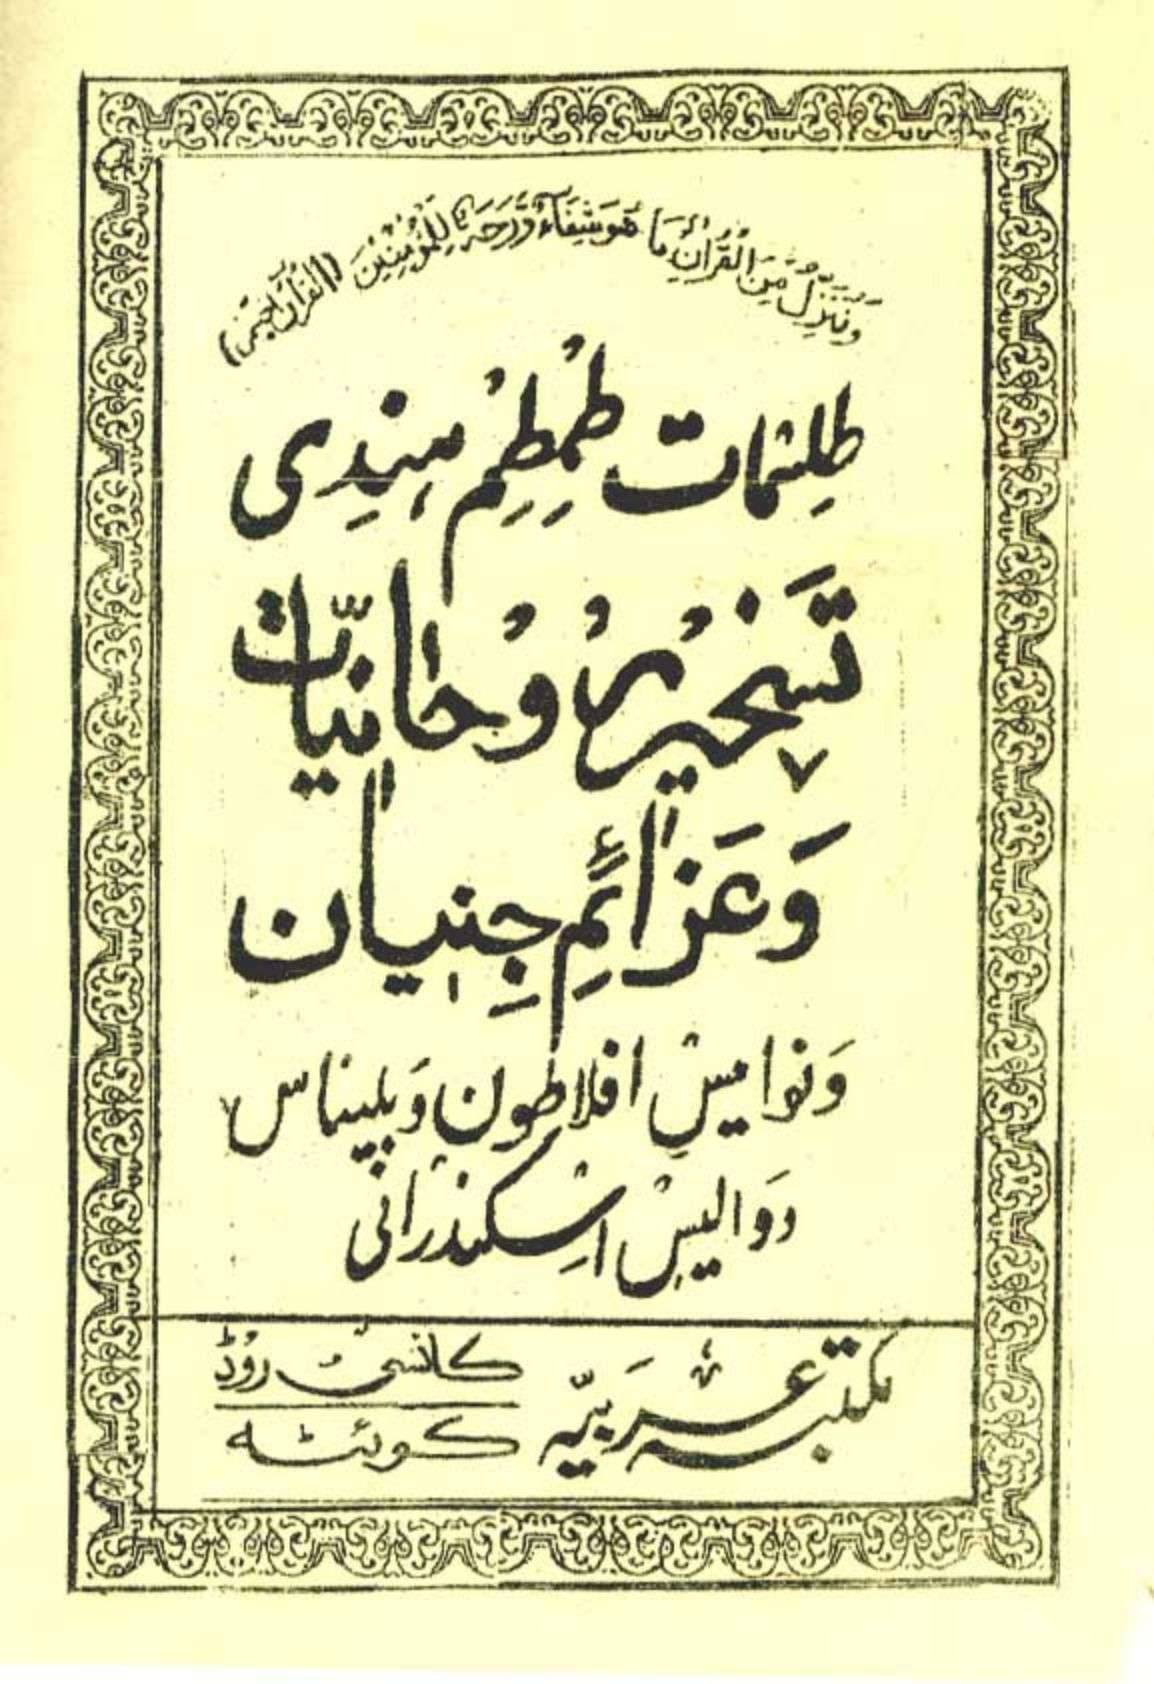 وَنُنَزِّلُ مِنَ الْقُرْاٰنِ مَا هُوَ شِفَآءٌ وَّرَحْمَةٌ لِّلْمُؤْمِنِيْنَ (القرآن الحكيم)
طلسمات طُمطُم هِندِی
تَسخیرِ رُوحانیّات
وَعَزائمِ جِنیان
وَنوامیسِ افلاطون وَبلیناس
و والیس اسکندرانی
مکتبہ عربیّہ
کانسی روڈ
کوئٹہ